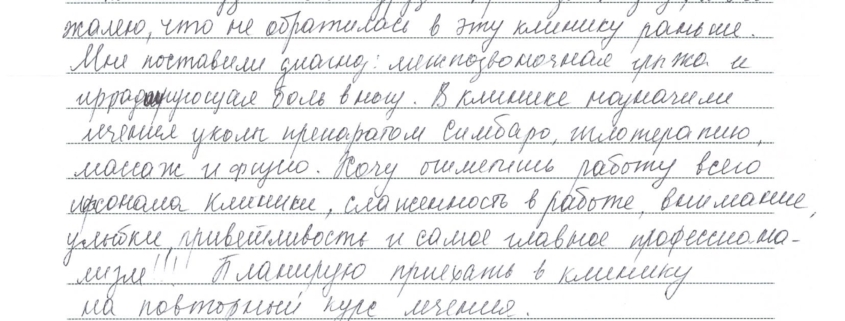 жалею, что не обратилась в эту клинику раньше.
Мне поставили диагноз: межпозвоночная грыжа и
иррадиирующая боль в ногу. В клинике назначили
лечения уколы препаратом Симбаро, иглотерапию,
массаж и физио. Хочу отметить работу всего
персонала клиники, слаженность в работе, внимание,
улыбки, приветливость и самое главное профессиона-
лизм!!! Планирую приехать в клинику
на повторный курс лечения.